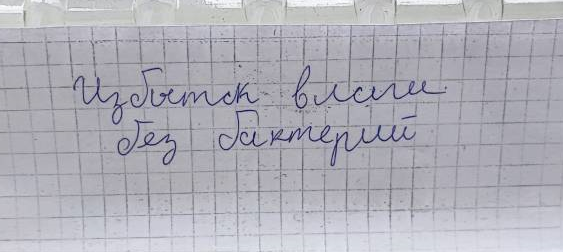 Избыток влаги
без бактерий